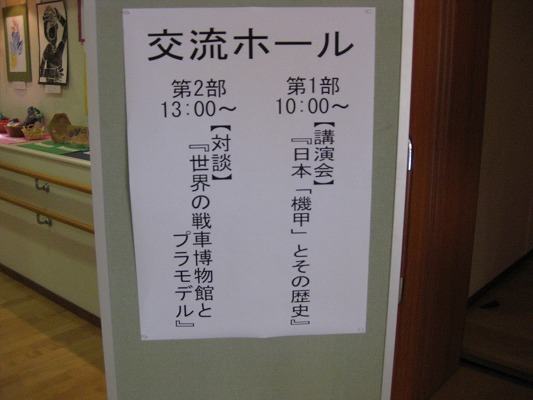 交流ホール
第1部
10:00～
【講演会】
『日本「機甲」とその歴史』
第2部
13:00～
【対談】
『世界の戦車博物館と
プラモデル』